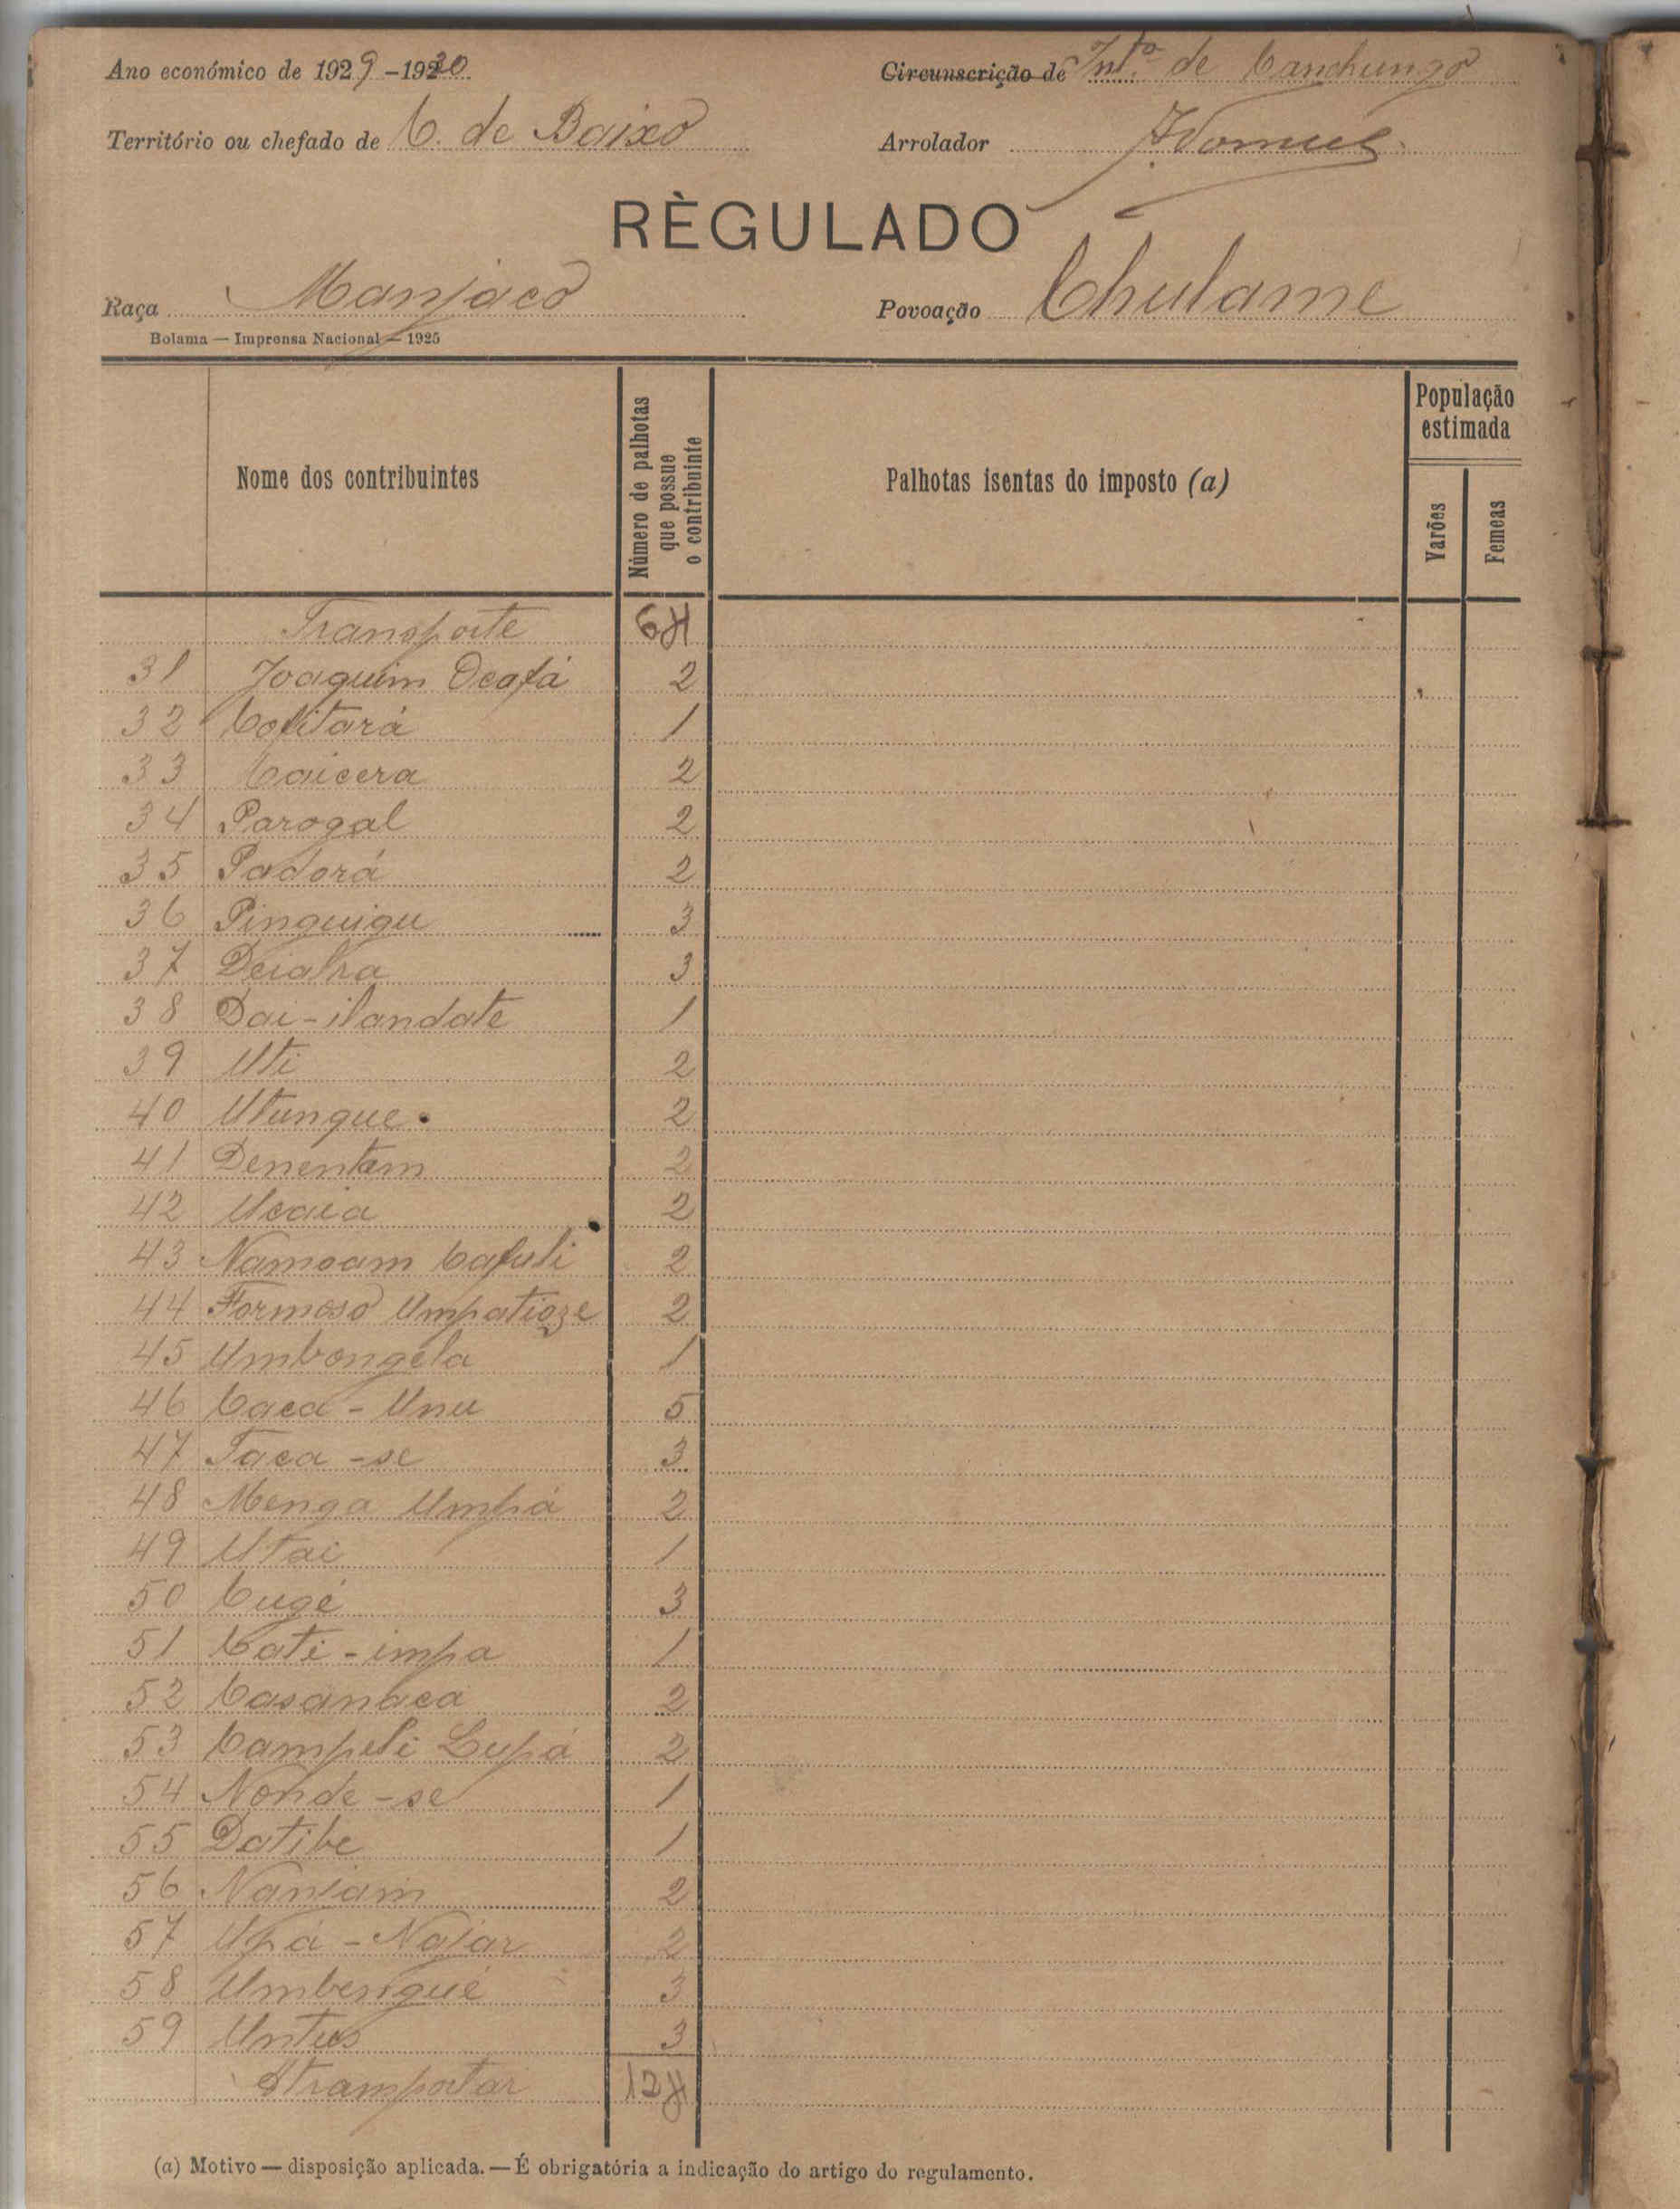 Ano económico de 1929-1930
Circunscrição de Intª de Canchungo
Território ou chefado de C. de Baixo
Arrolador
RÈGULADO
Raça Manjaco
Povoação Chulame
Bolama — Imprensa Nacional — 1925
Nome dos contribuintes
Número de palhotas que possue o contribuinte
Palhotas isentas do imposto (a)
População estimada
Varões
Femeas
Transporte
31 Joaquim Ocafá 2
32 1
33 Caicera 2
34 Parogal 2
35 Padorá 2
36 Pinguigu 3
37 3
38 Dai-ilandate 1
39 Uti 2
40 Utunque. 2
41 Denentam 2
42 Ucaia 2
43 Namoam Cafuli 2
44 Formoso Umpatioze 2
45 Umbongela 1
46 Caca-Unu 5
47 Taca-se 3
48 Menga Umpá 2
49 Utai 1
50 Cugé 3
51 Cati-impa 1
52 Casanaca 2
53 Campeli Lupá 2
54 Nonde-se 1
55 Datibe 1
56 Naniam 2
57 Upá-Najar 2
58 Umbengué 3
59 Untus 3
Atransportar
(a) Motivo — disposição aplicada. — É obrigatória a indicação do artigo do regulamento.